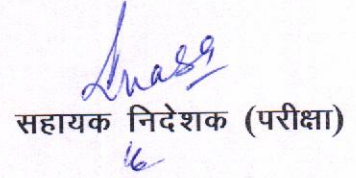 सहायक निदेशक (परीक्षा)